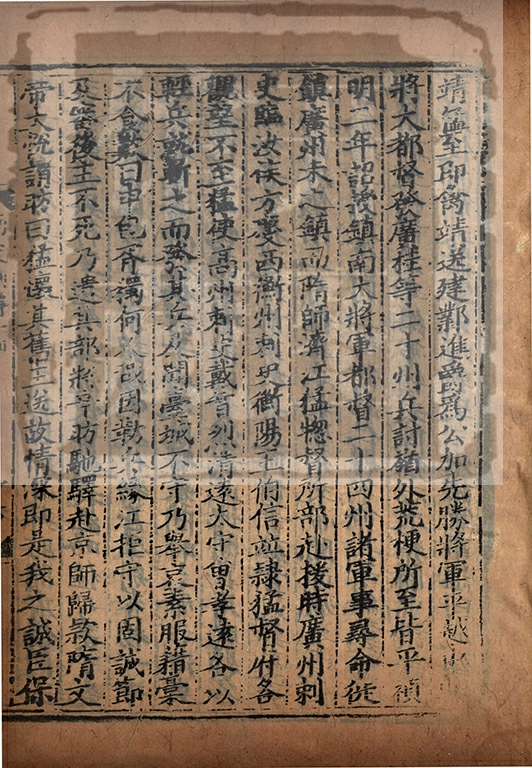 靖至即禽靖送建鄴進爵爲公加先勝將軍平越
將大都督發廣桂等二十州兵討嶺外荒梗所至皆平禎
明二年詔授鎮南大將軍都督二十四州諸軍事尋命徙
鎮廣州未之鎮而隋師濟江猛惣督所部赴援時廣州刺
史臨汝侯方慶西衡州刺史衡陽王伯信並隸猛督府各
觀望不至猛使高州刺史戴智烈清遠太守曾孝遠各以
輕兵就斬之而發其兵及聞臺城不守乃舉哀素服藉稾
不食歎曰申包胥獨何人哉因勒兵緣江拒守以固誠節
及審後主不死乃遣其部將辛昉馳驛赴京師歸款隋文
帝大悅謂昉曰猛懷其舊主送故情深即是我之誠臣保